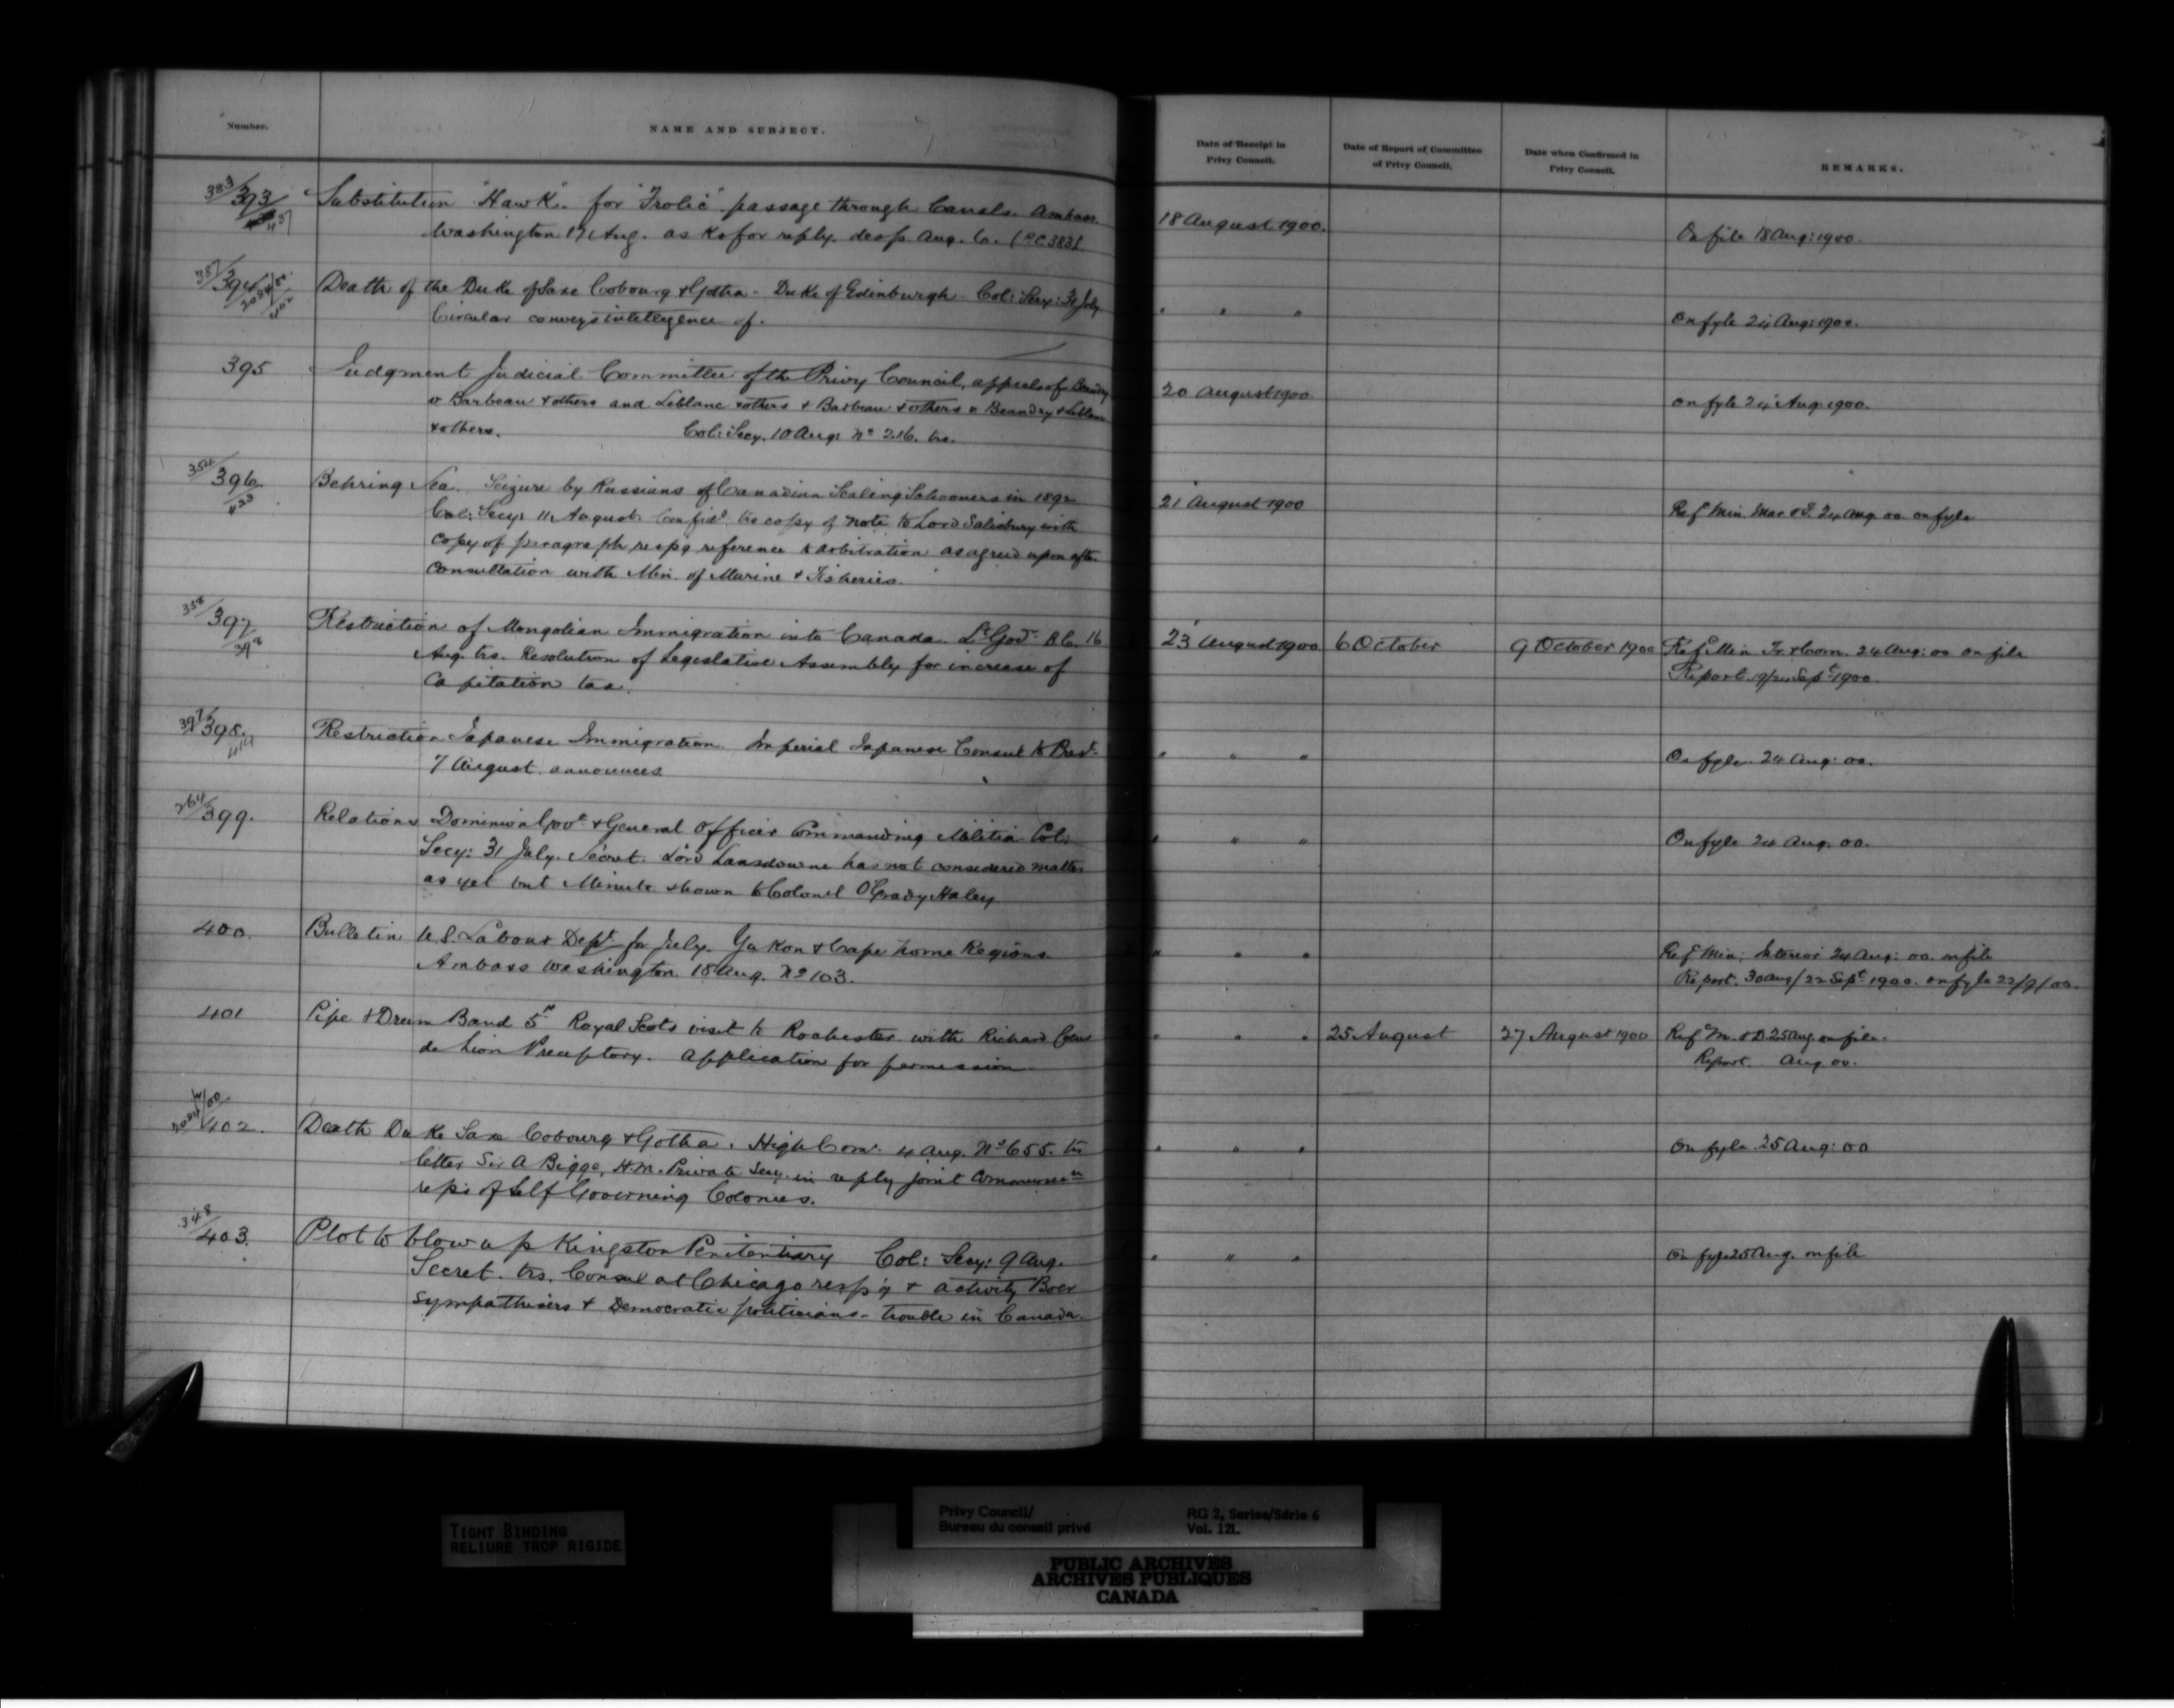 Number.
NAME AND SUBJECT.
Date of Receipt in
Privy Council.
Date of Report of Committee
of Privy Council.
Date when Confirmed in
Privy Council.
REMARKS.
383/393 Substitution "Hawk" for "Frolic" passage through Canals. Ambass. 18 August 1900.
Washington 17 Aug. asks for reply desp. Aug. 6. (P.C. 383). On file 18 Aug: 1900.
387/394 Death of the Duke of Saxe Cobourg & Gotha - Duke of Edinburgh - Col: Secy: 31 July
Circular conveys intelligence of. " " " On fyle 24 Aug: 1900.
395 Judgment Judicial Committee of the Privy Council, appeals of Beaudry 20 August 1900
v Barbeau & others and Leblanc & others & Barbeau & others v Beaudry & Leblanc On fyle 24 Aug. 1900.
& others. Col: Secy. 10 Aug: No 216. trs.
354/396. Behring Sea. Seizure by Russians of Canadian Sealing Schooners in 1892
433 Col: Secy: 11 August. Confid'l trs copy of note to Lord Salisbury with 21 August 1900 Ref Min. Mar & F. 24 Aug. 00 on fyle
copy of paragraph respg reference to arbitration as agreed upon aftr.
consultation with Min. of Marine & Fisheries.
358/397 Restriction of Mongolian Immigration into Canada. Lt Govr B.C. 16 23 August 1900 6 October 9 October 1900 Ref Min Tr. & Com. 24 Aug: 00 on file
398 Aug. trs. Resolution of Legislative Assembly for increase of Report Sept 1900.
Capitation tax.
397/398. Restriction Japanese Immigration. Imperial Japanese Consul to Prest.
414 7 August announces " " " On fyle 24 Aug: 00.
264/399. Relations Dominion Govt & General Officer Commanding Militia Col: " " " On fyle 24 Aug. 00.
Secy: 31 July. Secret. Lord Lansdowne has not considered matter
as yet but Minute shown to Colonel O'Grady Haley
400. Bulletin U.S. Labour Dept for July. Yukon & Cape Nome Regions. " " " Ref Min: Interior 24 Aug: 00. on file
Ambass Washington 18 Aug. No 103. Report. 30 Aug/22 Sept 1900. on fyle 22/9/00.
401 Pipe & Drum Band 5th Royal Scots visit to Rochester with Richard Coeur " " " 25 August 27 August 1900 Ref M. & D. 25 Aug. on file.
de Lion Preceptory. Application for permission Report. Aug. 00.
402. Death Duke Saxe Cobourg & Gotha. High Com. 4 Aug. No 655. trs " " " On fyle 25 Aug: 00
letter Sir A Bigge, H.M. Private Secy. in reply joint communicn
reps of Self Governing Colonies.
348/403. Plot to blow up Kingston Penitentiary Col: Secy: 9 Aug. " " " On fyle 25 Aug. on file
Secret. trs. Consul at Chicago respg & activity Boer
sympathisers & Democratic politicians - trouble in Canada.
TIGHT BINDING
RELIURE TROP RIGIDE
Privy Council/
Bureau du conseil privé
RG 2, Series/Série 6
Vol. 121.
PUBLIC ARCHIVES
ARCHIVES PUBLIQUES
CANADA